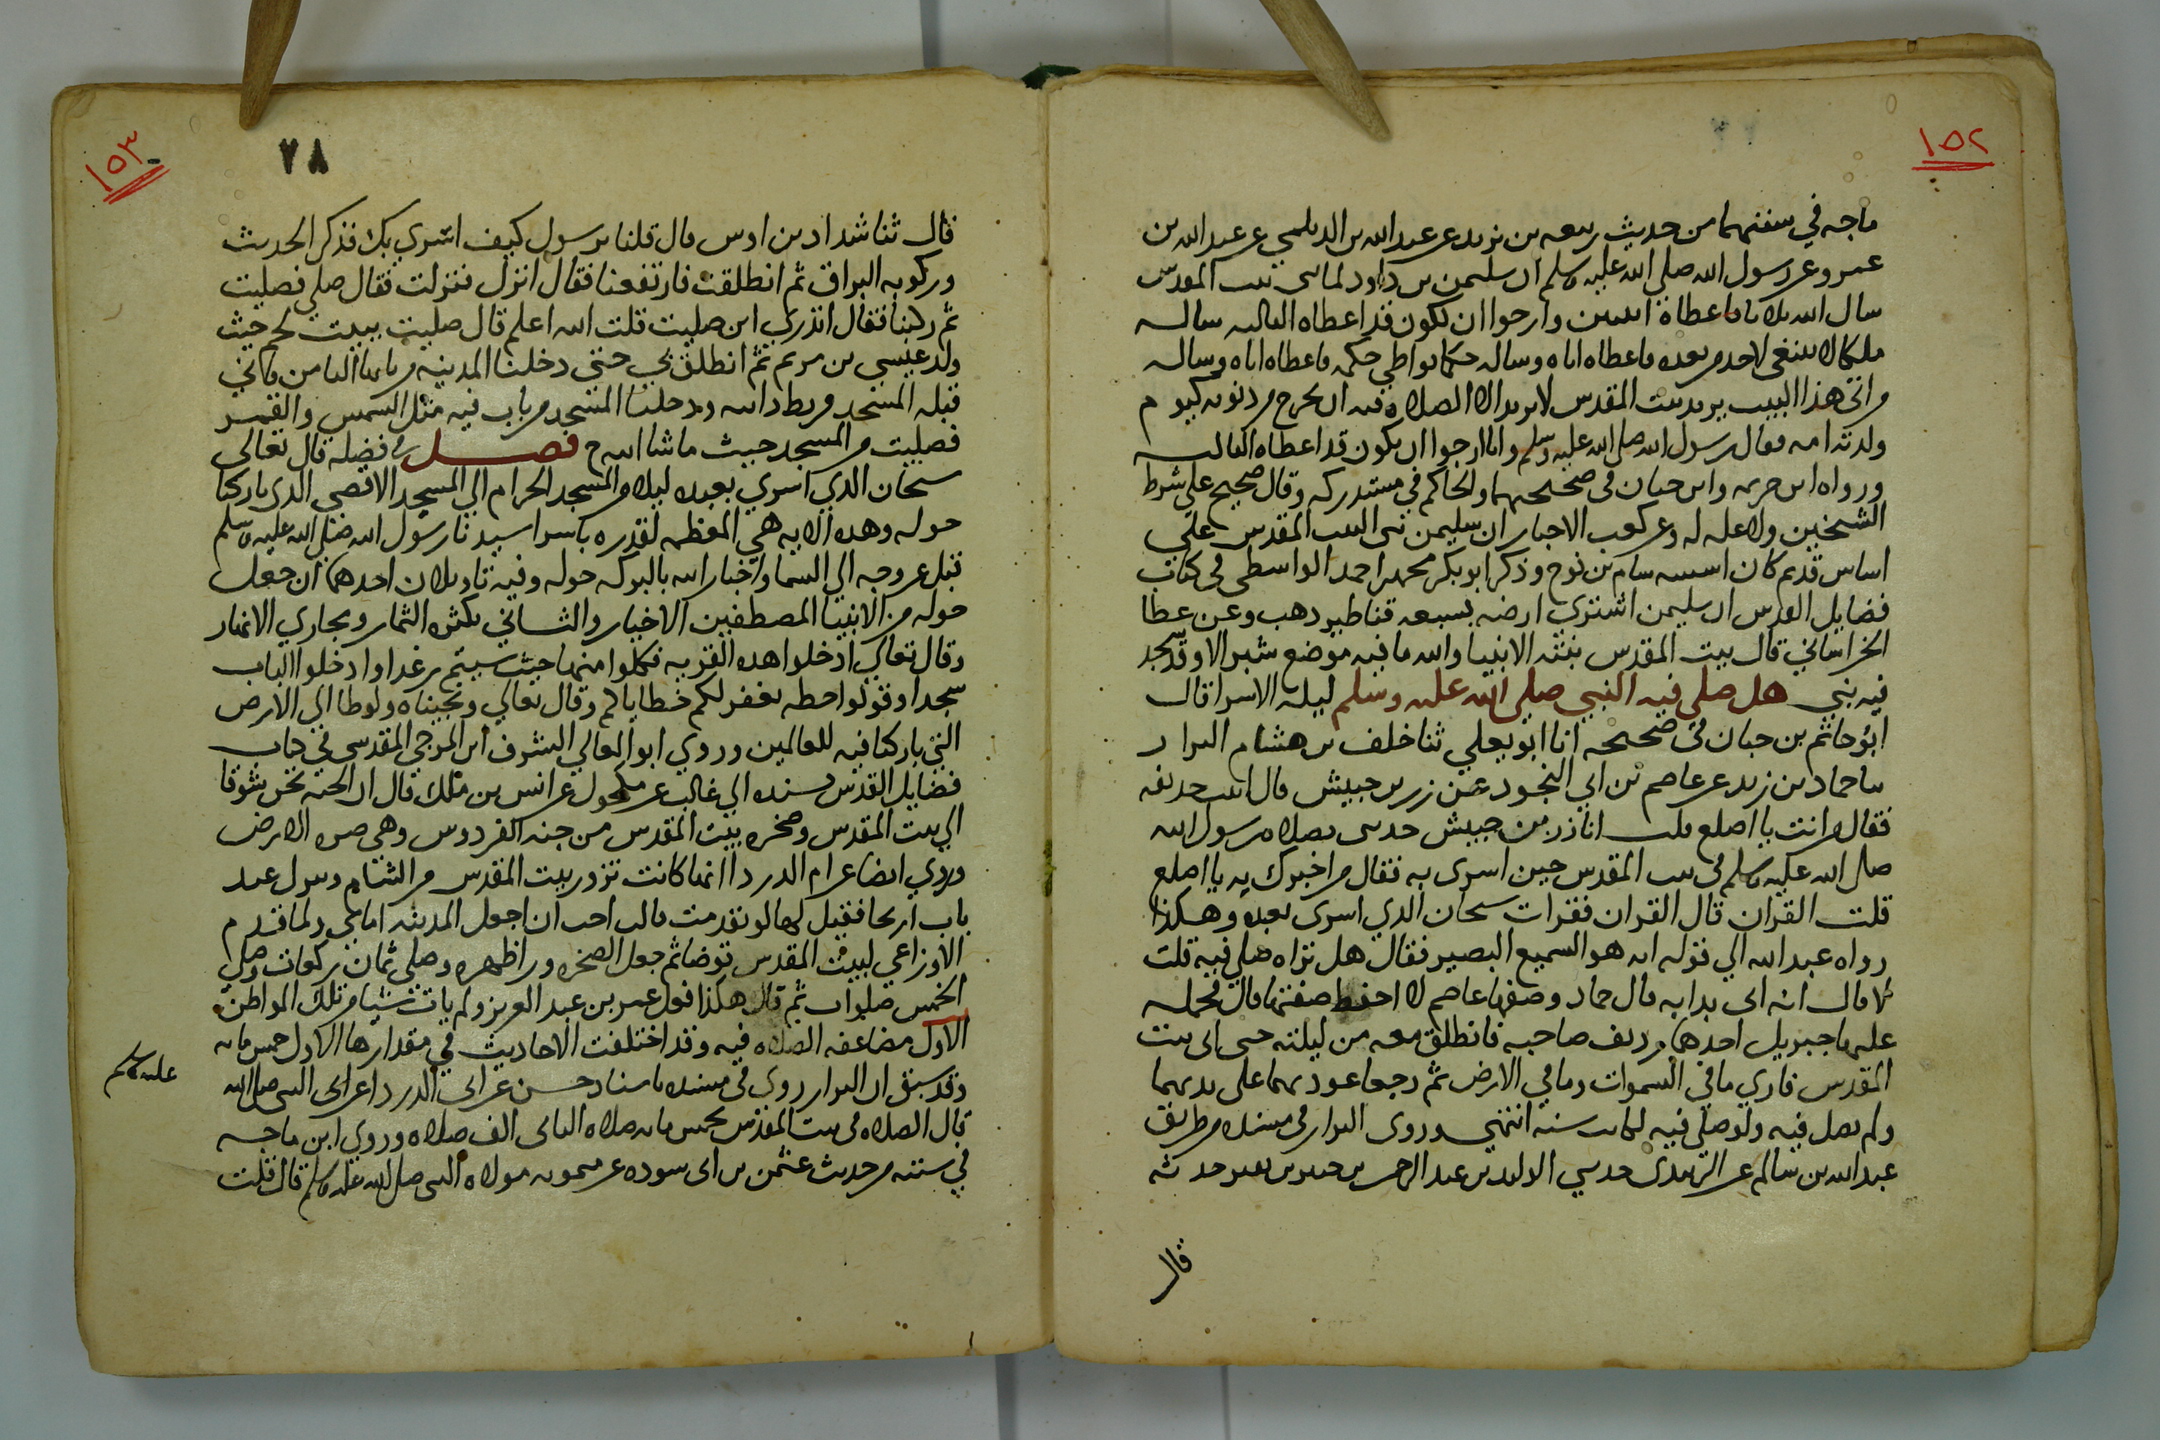 ١٥٢
ماجه في سننهما من حديث ربيعه بن يزيد عن عبد الله بن الديلمي عن عبد الله بن
عمرو عن رسول الله صلى الله عليه وسلم ان سليمن بن داود لما بنى بيت المقدس
سال الله ثلاثا فاعطاه اثنين وارجوا ان يكون قد اعطاه الثالثه ساله
ملكا لا ينبغي لاحد من بعده فاعطاه اياه وساله حكما يواطي حكمه فاعطاه اياه وساله
من اتى هذا البيت يريد بيت المقدس لا يريد الا الصلاه فيه ان يخرج من ذنوبه كيوم
ولدته امه فقال رسول الله صلى الله عليه وسلم وانا ارجوا ان يكون قد اعطاه الثالثه
ورواه ابن خزيمه وابن حبان في صحيحيهما والحاكم في مستدركه وقال صحيح على شرط
الشيخين ولا علة له وعن كعب الاحبار ان سليمن بنى البيت المقدس على
اساس قديم كان اسسه سام بن نوح وذكر ابو بكر محمد بن احمد الواسطى في كتاب
فضايل القدس ان سليمن اشترى ارضه بسبعه قناطير ذهب وعن عطا
الخراساني قال بيت المقدس بنته الانبيا والله ما فيه موضع شبر الا وقد سجد
فيه نبي هل صلى فيه النبي صلى الله عليه وسلم ليله الاسرا قال
ابو حاتم بن حبان في صحيحه انا ابو يعلي ثنا خلف بن هشام البزار
ثنا حماد بن زيد عن عاصم بن ابي النجود عن زر بن حبيش قال اتيت حذيفه
فقال من انت يا اصلع قلت انا زر بن حبيش حدثنى بصلاه رسول الله
صلى الله عليه وسلم في بيت المقدس حين اسرى به فقال من اخبرك به يا اصلع
قلت القران قال القران فقرات سبحان الذي اسرى بعبده وهكذا
رواه عبد الله الي قوله انه هو السميع البصير فقال هل تراه صلى فيه قلت
لا قال انه اتى بدابه قال حماد وصفها عاصم لا احفظ صفتها قال فحمله
عليها جبريل احدهما رديف صاحبه فانطلق معه من ليلته حتى اتى بيت
المقدس فاري ما في السموات وما في الارض ثم رجعا عودهما على بدئهما
ولم يصل فيه ولو صلى فيه لكانت سنه انتهي وروى البزار في مسنده من طريق
عبد الله بن سالم عن الزبيدى حدثني الوليد بن عبد الرحمن بن جبير بن نفير حدثه
قال
١٥٣
٧٨
قال ثنا شداد بن اوس قال قلنا يرسول كيف اسري بك فذكر الحديث
وركوبه البراق ثم انطلقت فارتفعنا فقال انزل فنزلت فقال صلي فصليت
ثم ركبنا فقال اتدري اين صليت قلت الله اعلم قال صليت ببيت لحم حيث
ولد عيسى بن مريم ثم انطلق بي حتى دخلنا المدينه من بابها اليامن فاتي
قبله المسجد فربط دابته ودخلنا المسجد من باب فيه مثل الشمس والقمر
فصليت من المسجد حيث ما شا الله ح فصل في فضله قال تعالى
سبحان الذي اسري بعبده ليلا من المسجد الحرام الى المسجد الاقصي الذي باركنا
حوله وهذه الايه هي المعظمه لقدره باسرا سيدنا رسول الله صلى الله عليه وسلم
قبل عروجه الي السما واخبار الله بالبركه حوله وفيه تاويلان احدهما ان جعل
حوله من الانبيا المصطفين الاخيار والثاني بكثره الثمار ومجاري الانهار
وقال تعالي ادخلوا هذه القريه فكلوا منها حيث شيتم رغدا وادخلوا الباب
سجدا وقولوا حطه نغفر لكم خطاياكم وقال تعالي ونجيناه ولوطا الي الارض
التي باركنا فيها للعالمين وروي ابو المعالي المشرف ابن المرجي المقدسي في كتاب
فضايل القدس بسنده الي غالب عن مكحول عن انس بن ملك قال ان الجنه تحن شوقا
الي بيت المقدس وصخره بيت المقدس من جنه الفردوس وهي صره الارض
وروي ايضا عن ام الدردا انها كانت تزور بيت المقدس من الشام وتنزل عند
باب اريحا فقيل لها لو تقدمت قالت احب ان اجعل المدينه امامي ولما قدم
الاوزاعي لبيت المقدس توضا ثم جعل الصخره ورا ظهره وصلى ثمان ركعات وصلى
الخمس صلوات ثم قال هكذا فعل عمر بن عبد العزيز ولم يات شيا من تلك المواطن
الاول مضاعفه الصلاه فيه وقد اختلفت الاحاديث في مقدارها الاول خمس مايه
وقد سبق ان البزار روى في مسنده باسناد حسن عن ابى الدردا عن النبى صلى الله
عليه وسلم
قال الصلاه في بيت المقدس بخمس مايه صلاه الثانى الف صلاه وروي ابن ماجه
في سننه من حديث عثمن بن ابى سوده عن ميمونه مولاه النبى صلى الله عليه وسلم قال قلت